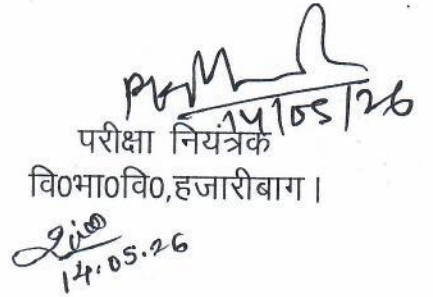 14/05/26
परीक्षा नियंत्रक
वि0भा0वि0,हजारीबाग।
14.05.26